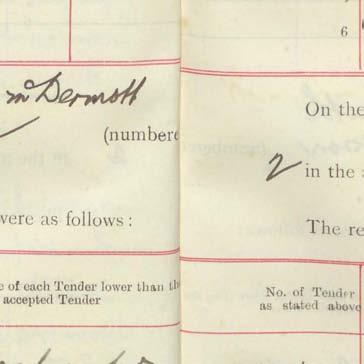 McDermott
(numbere
were as follows:
e of each Tender lower than th
accepted Tender
6
On the
2 in the
The re
No. of Tender
as stated above